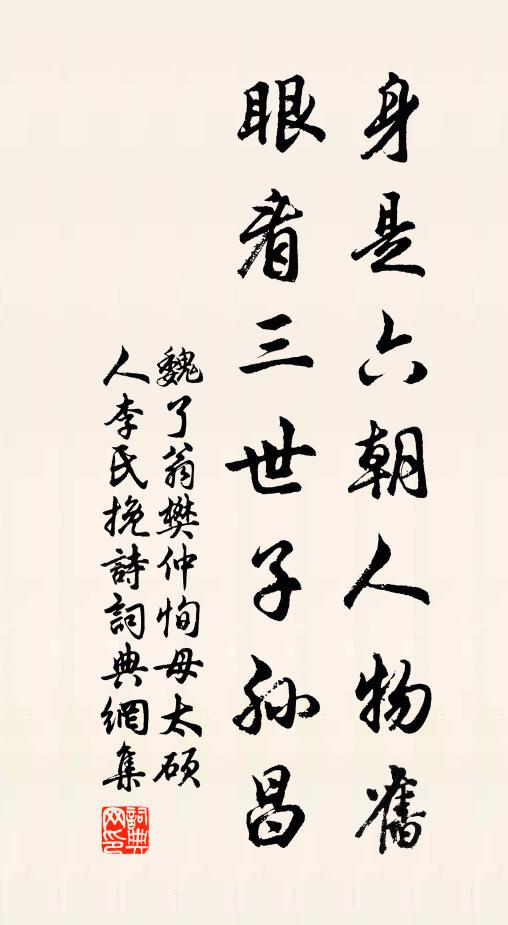 身是六朝人物舊
眼看三世子孫昌
魏了翁樊仲恂母太碩
人李氏挽詩詞典網集
詞典網印